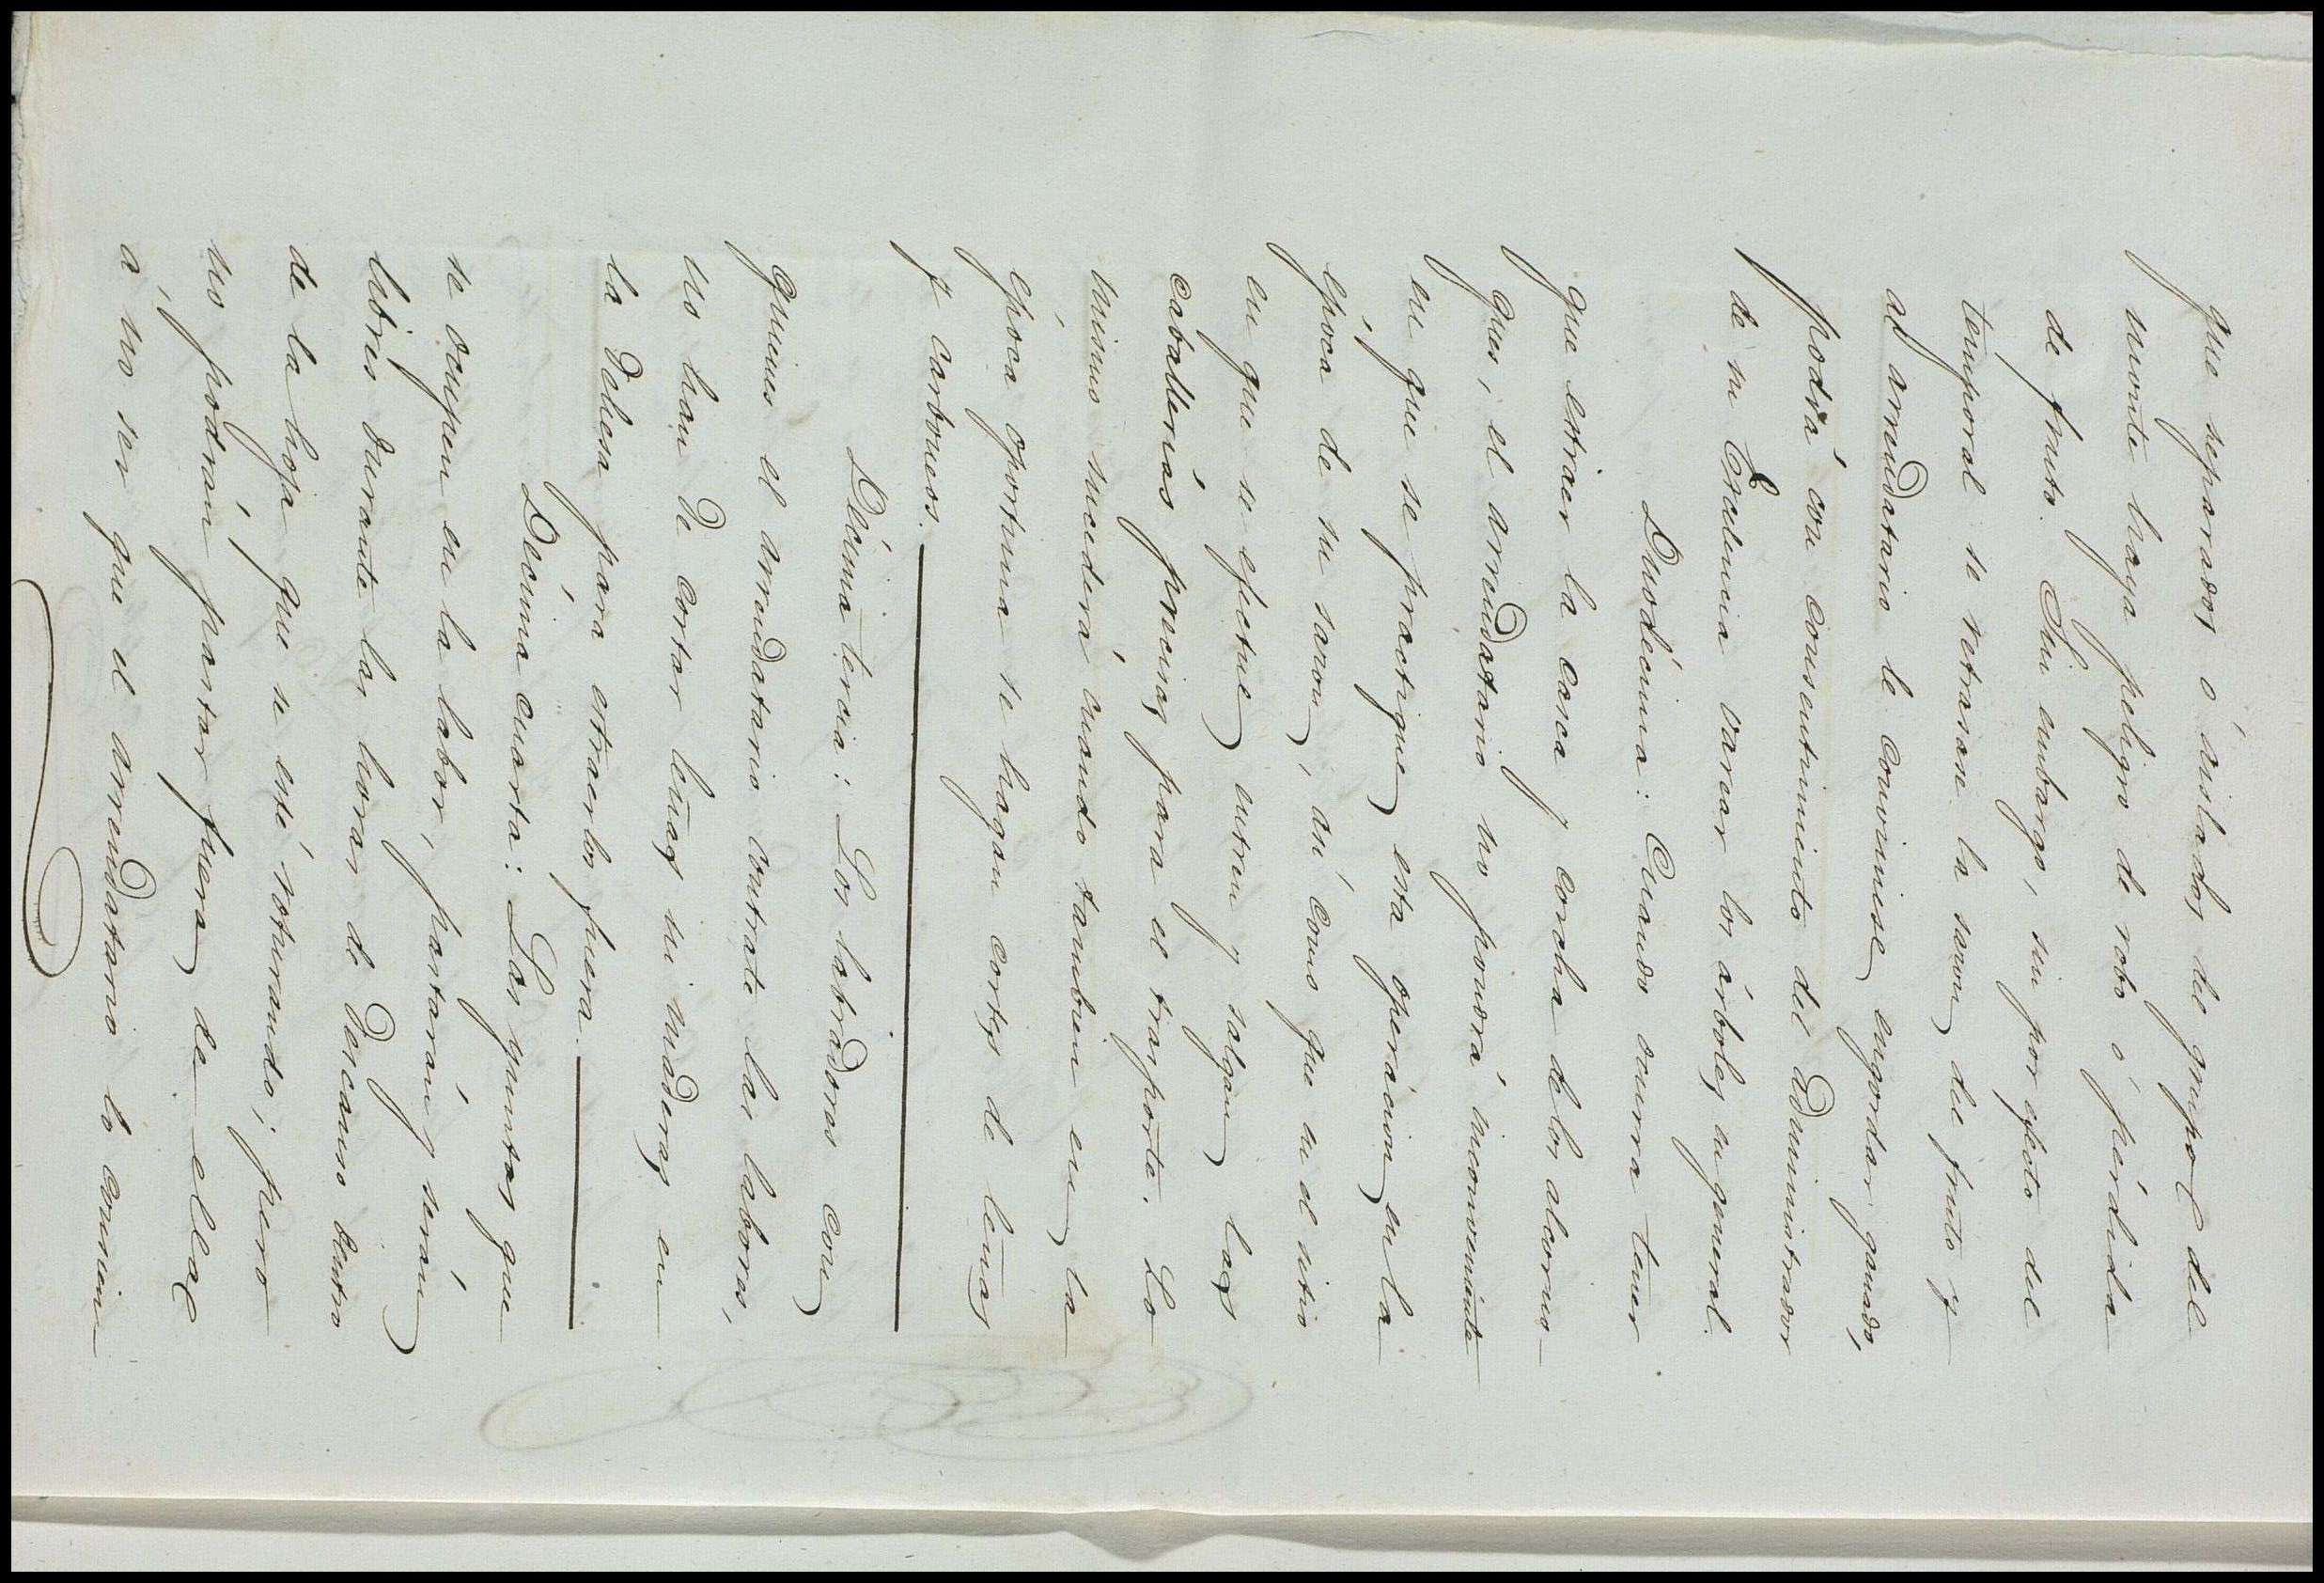 que separados ó aislados del grupo del
monte haya peligro de robo ó pérdida
de fruto. Sin embargo, si por efecto del
temporal se retrasase la sazon del fruto y
al arrendatario le conviniese engordar ganado,
podrá con consentimiento del Administrador
de su Escelencia varear los árboles en general.
Duodécima: Cuando ocurra tener
que estraer la casca y corcha de los alcorno-
ques, el arrendatario no pondrá inconveniente
en que se practique esta operacion en la
época de su sazon, asi como que en el sitio
en que se efectue entren y salgan las
caballerias precisas para el trasporte. Lo
mismo sucederá cuando tambien en la
época oportuna se hagan cortas de leñas
y carboneos.
Décima tercia: Los labradores con
quienes el arrendatario contrate las labores,
no han de cortar leñas ni maderas en
la Dehesa para estraerlos fuera.
Decima cuarta: Las yuntas que
se ocupen en la labor, pastarán y serán
libres durante las horas de descanso dentro
de la hoja que se esté roturando; pero
no podrán pastar fuera de ella
á no ser que el arrendatario lo consien